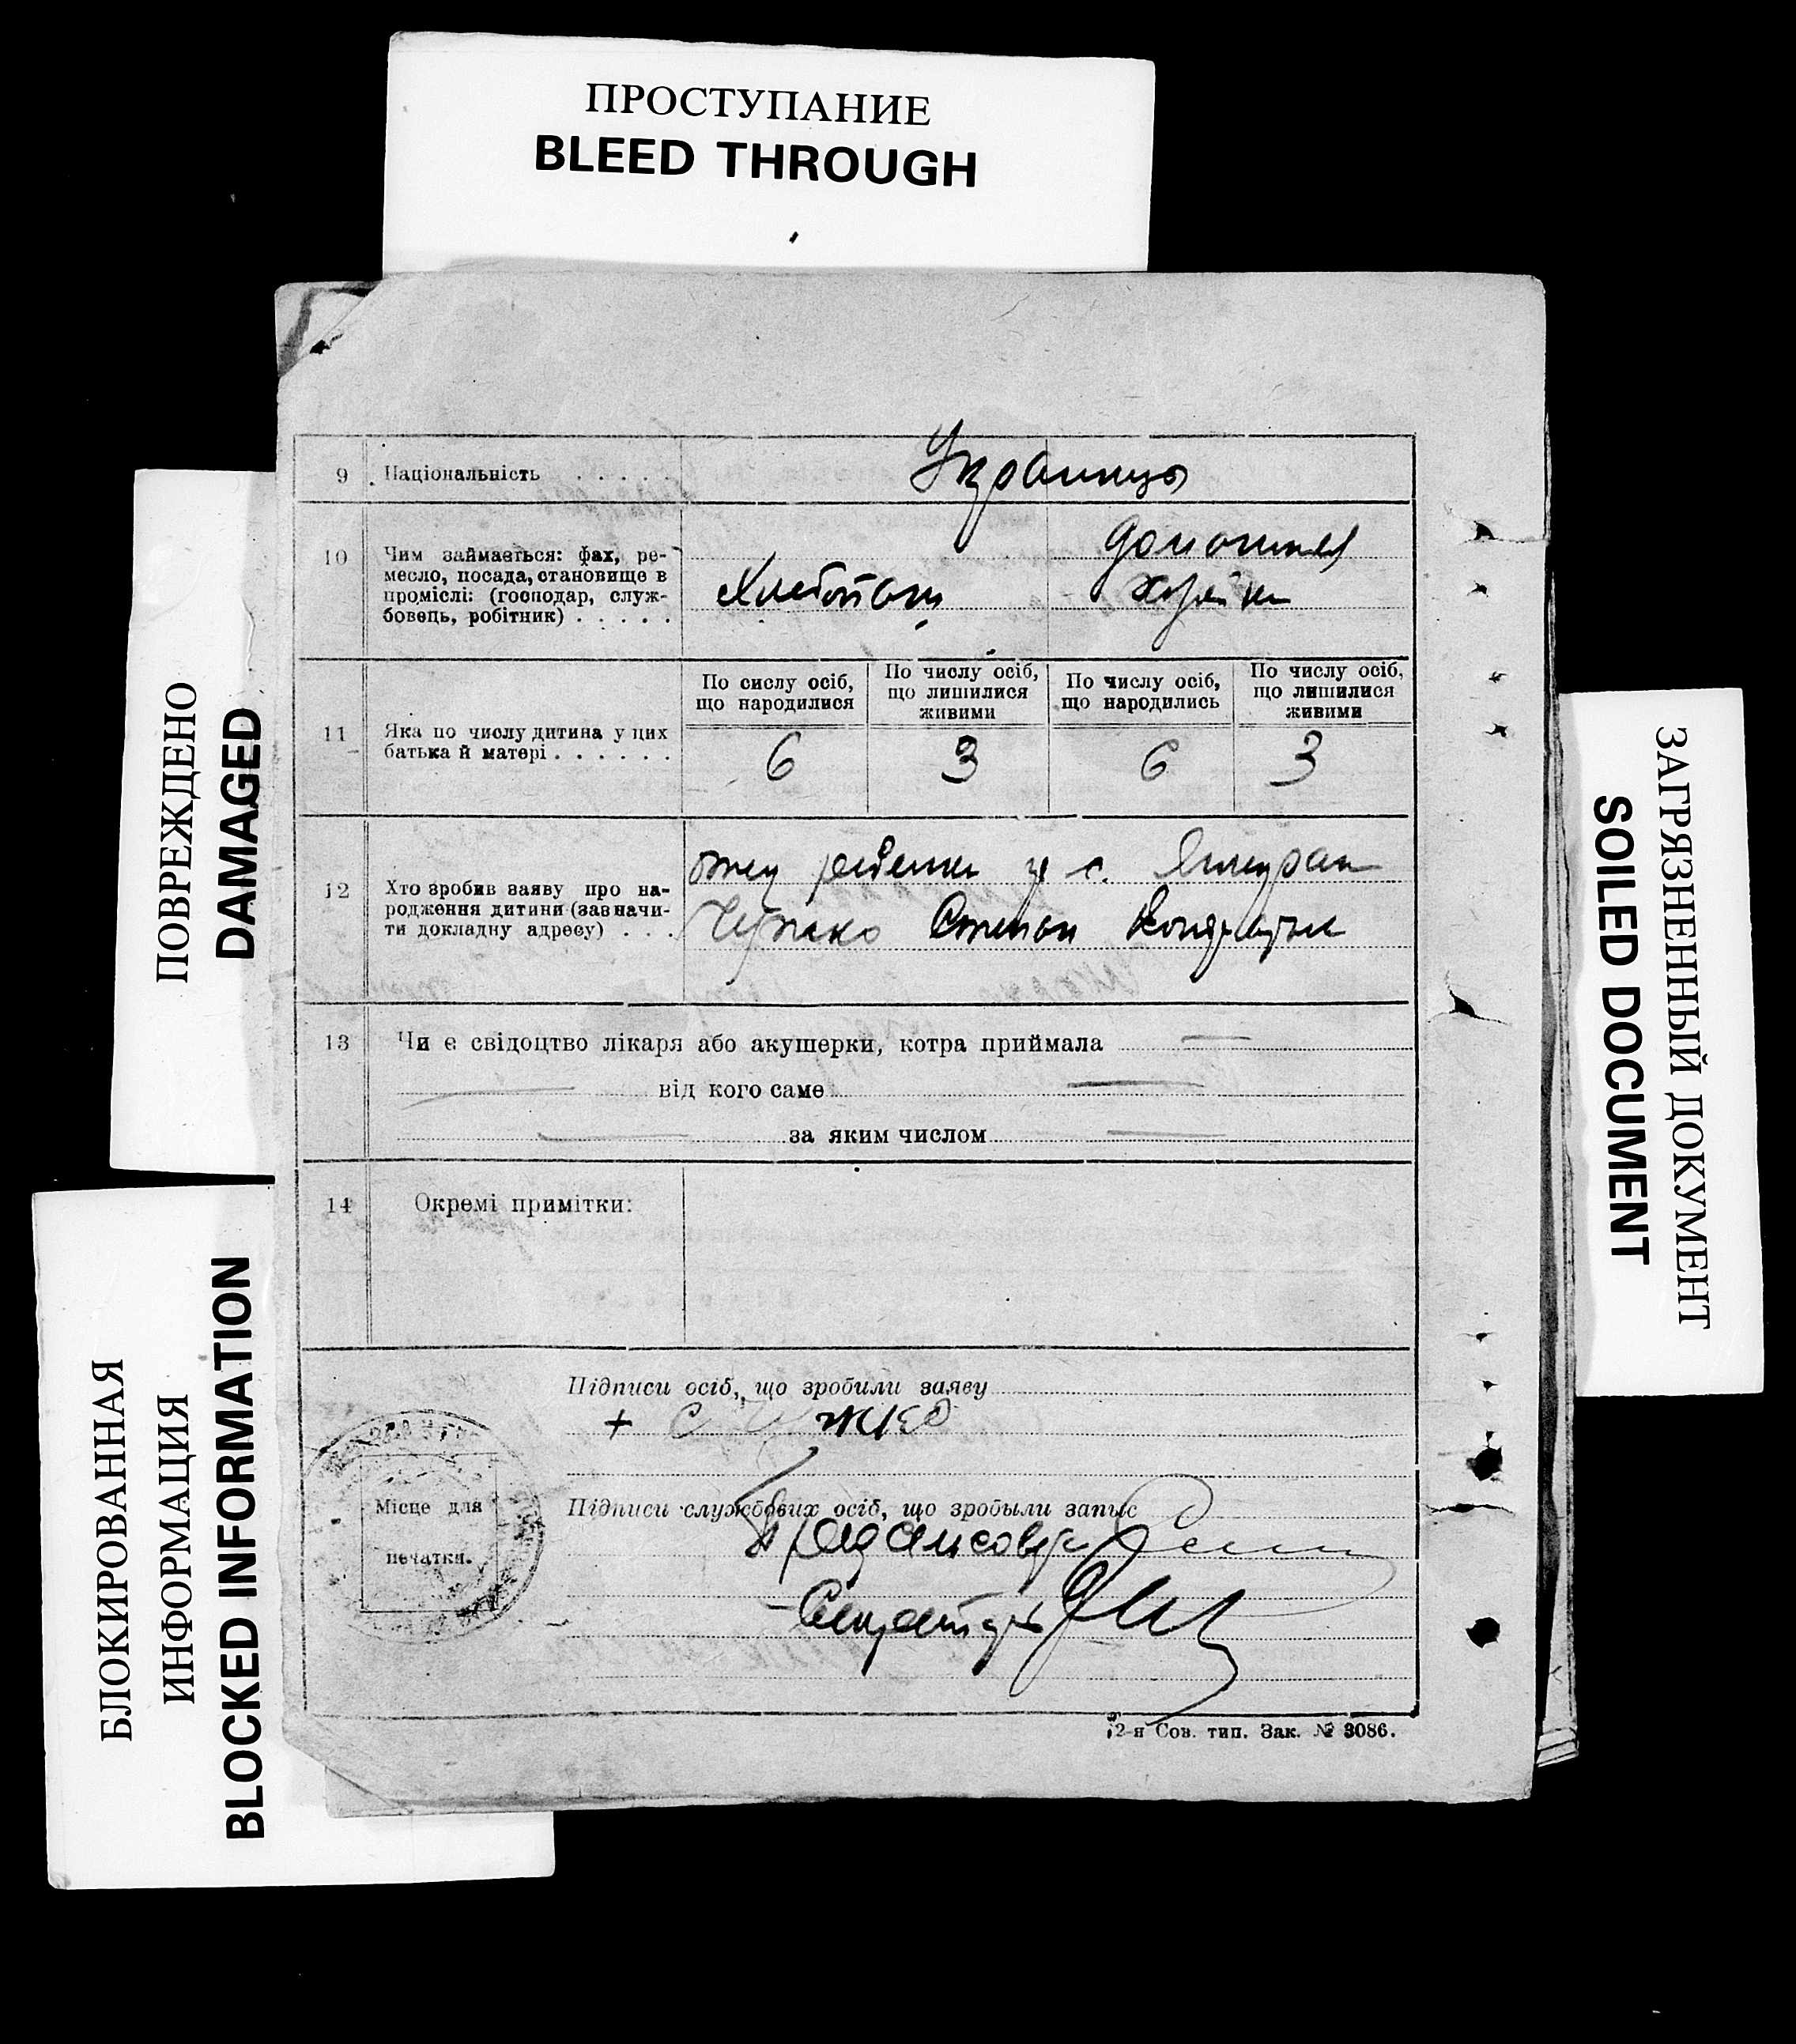 ПРОСТУПАНИЕ
BLEED THROUGH
ПОВРЕЖДЕНО
DAMAGED
БЛОКИРОВАННАЯ
ИНФОРМАЦИЯ
BLOCKED INFORMATION
ЗАГРЯЗНЕННЫЙ ДОКУМЕНТ
SOILED DOCUMENT
9 Національність . . . . . Украинцы
10 Чим займається: фах, ре-
месло, посада, становище в
промислі: (господар, служ-
бовець, робітник) . . . . .
Хлебопаш
домашняя
11 Яка по числу дитина у цих
батька й матері . . . . . .
По сислу осіб,
що народилися
По числу осіб,
що лишилися
живими
По числу осіб,
що народились
По числу осіб,
що лишилися
живими
6 3 6 3
12 Хто зробив заяву про на-
родження дитини (зазначи-
ти докладну адресу) . . .
отец ребенка с.
Степан
13 Чи є свідоцтво лікаря або акушерки, котра приймала
від кого саме
за яким числом
14 Окремі примітки:
Підписи осіб, що зробили заяву
+ С
Підписи службових осіб, що зробыли запыс
Секретарь
Місце для
печатки.
2-я Сов. тип. Зак. № 3086.